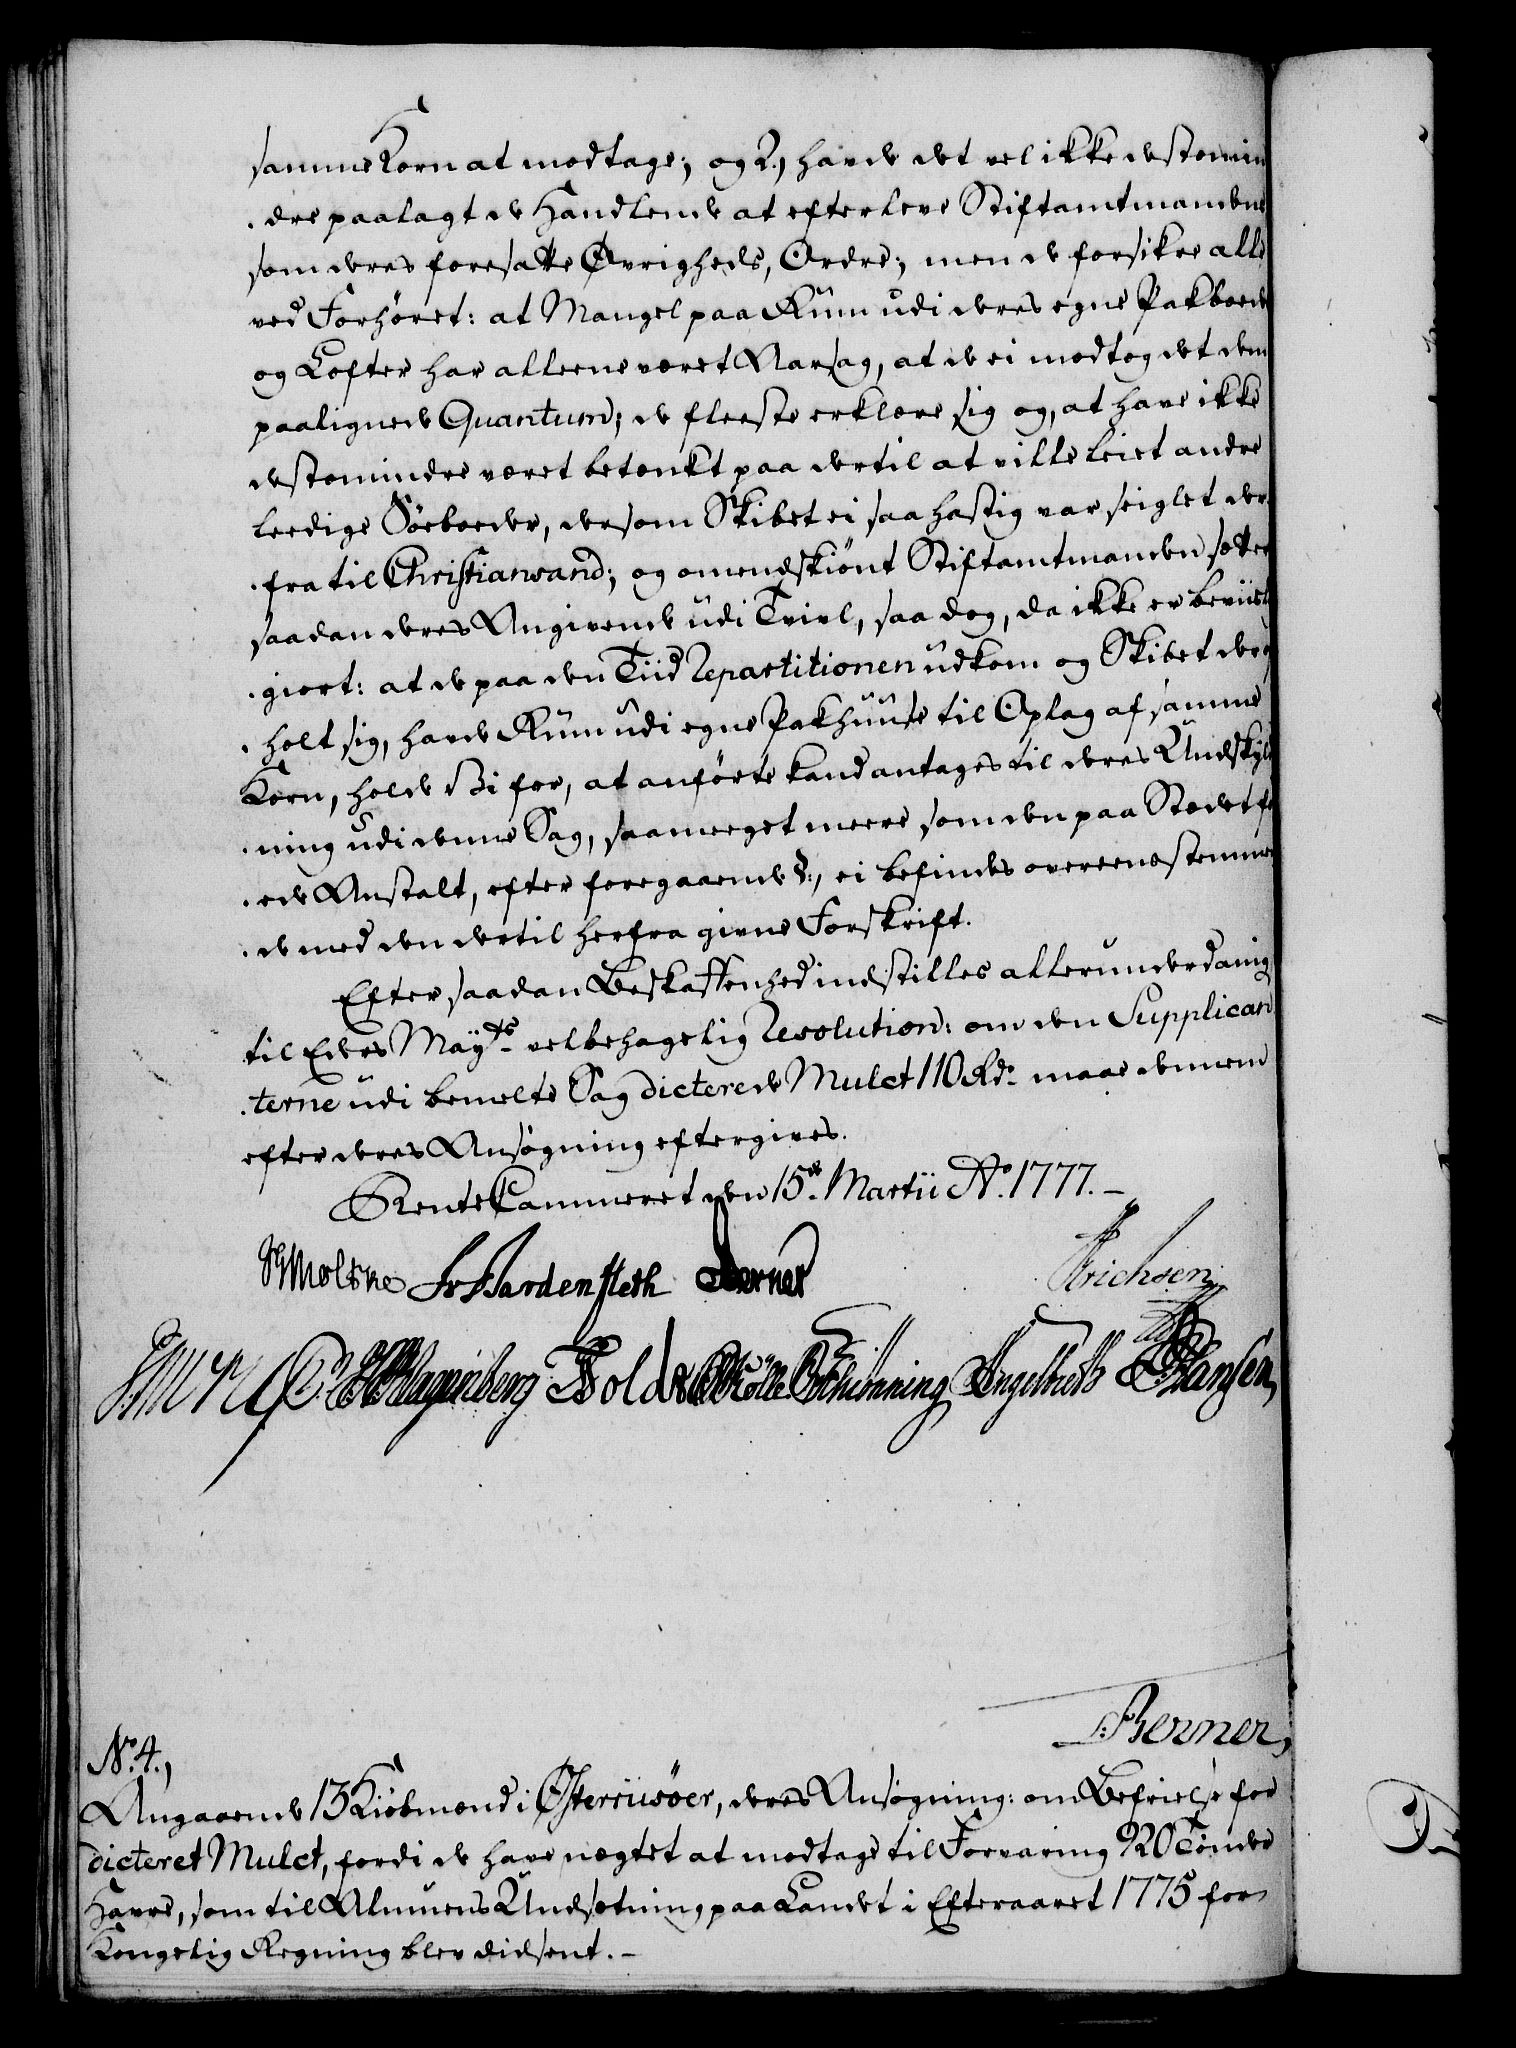 samme Korn at modtage; og 2, havde det vel ikke destomin
dre paalagt de Handlende at efterleve Stiftamtmandens
som deres foresatte Øvrigheds, Ordre; men de forsikre alle
ved Forhøret: at Mangel paa Rum udi deres egne Pakboed
og Lofter har alleene været Aarsag, at de ei modtog det dem
paalignede Quantum; de fleeste erklære sig og, at have ikke
destomindre været betænkt paa dertil at ville leiet andre
leedige Søeboeder, dersom Skibet ei saa hastig var seiglet der
fra til Christiansand; og omendskiønt Stiftamtmanden sætter
saadan deres Angivende udi Tvivl, saa dog, da ikke er beviist
giort: at de paa den Tiid Repartitionen udkom og Skibet der op
holt sig, havde Rum udi egne Pakhuuse til Oplag af samme
Korn, holde Vi for, at anførte kand antages til deres Undskyld
ning udi denne Sag, saameeget meere som den paa Stædet
ede Anstalt, efter foregaaende §, ei befindes overeensstemmen
de med den dertil herfra givne Forskrift.
Efter saadan Beskaffenhed indstilles allerunderdanigst
til Eders Mayts velbehagelig Resolution: om den Supplican
terne udi bemelte Sag dicterede Mulct 110 Rd. maae dennem
efter deres Ansøgning eftergives.
RenteKammeret den 15de Martii Ao. 1777.
Moltke Fr Bardenfleth Berner Erichsen
Klagenberg Holdt Mølle Schiønning Engelbreth Hansen,
Berner,
No. 4.,
Angaaende 13 Kiøbmænd i Østerriisöer, deres Ansøgning: om Befrielse for
dicteret Mulct, fordi de have nægtet at modtage til Forvaring 920 Tønder
Havre, som til Almuens Undsætning paa Landet i Efteraaret 1775 for
Kongelig Regning blev didsent.